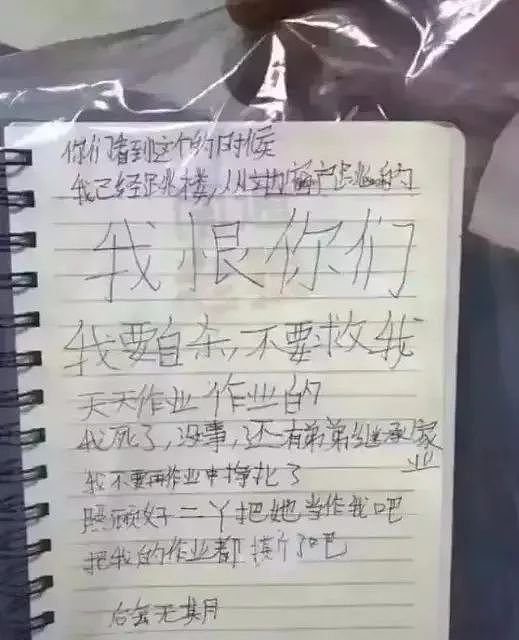 你们看到这个的时候
我已经跳楼,从窗户跳的
我恨你们
我要自杀,不要救我
天天作业作业的
我死了,没事,还有弟弟继承家业
我不要再作业中挣扎了
照顾好二丫把她当作我吧
把我的作业都撕了吧
后会无期